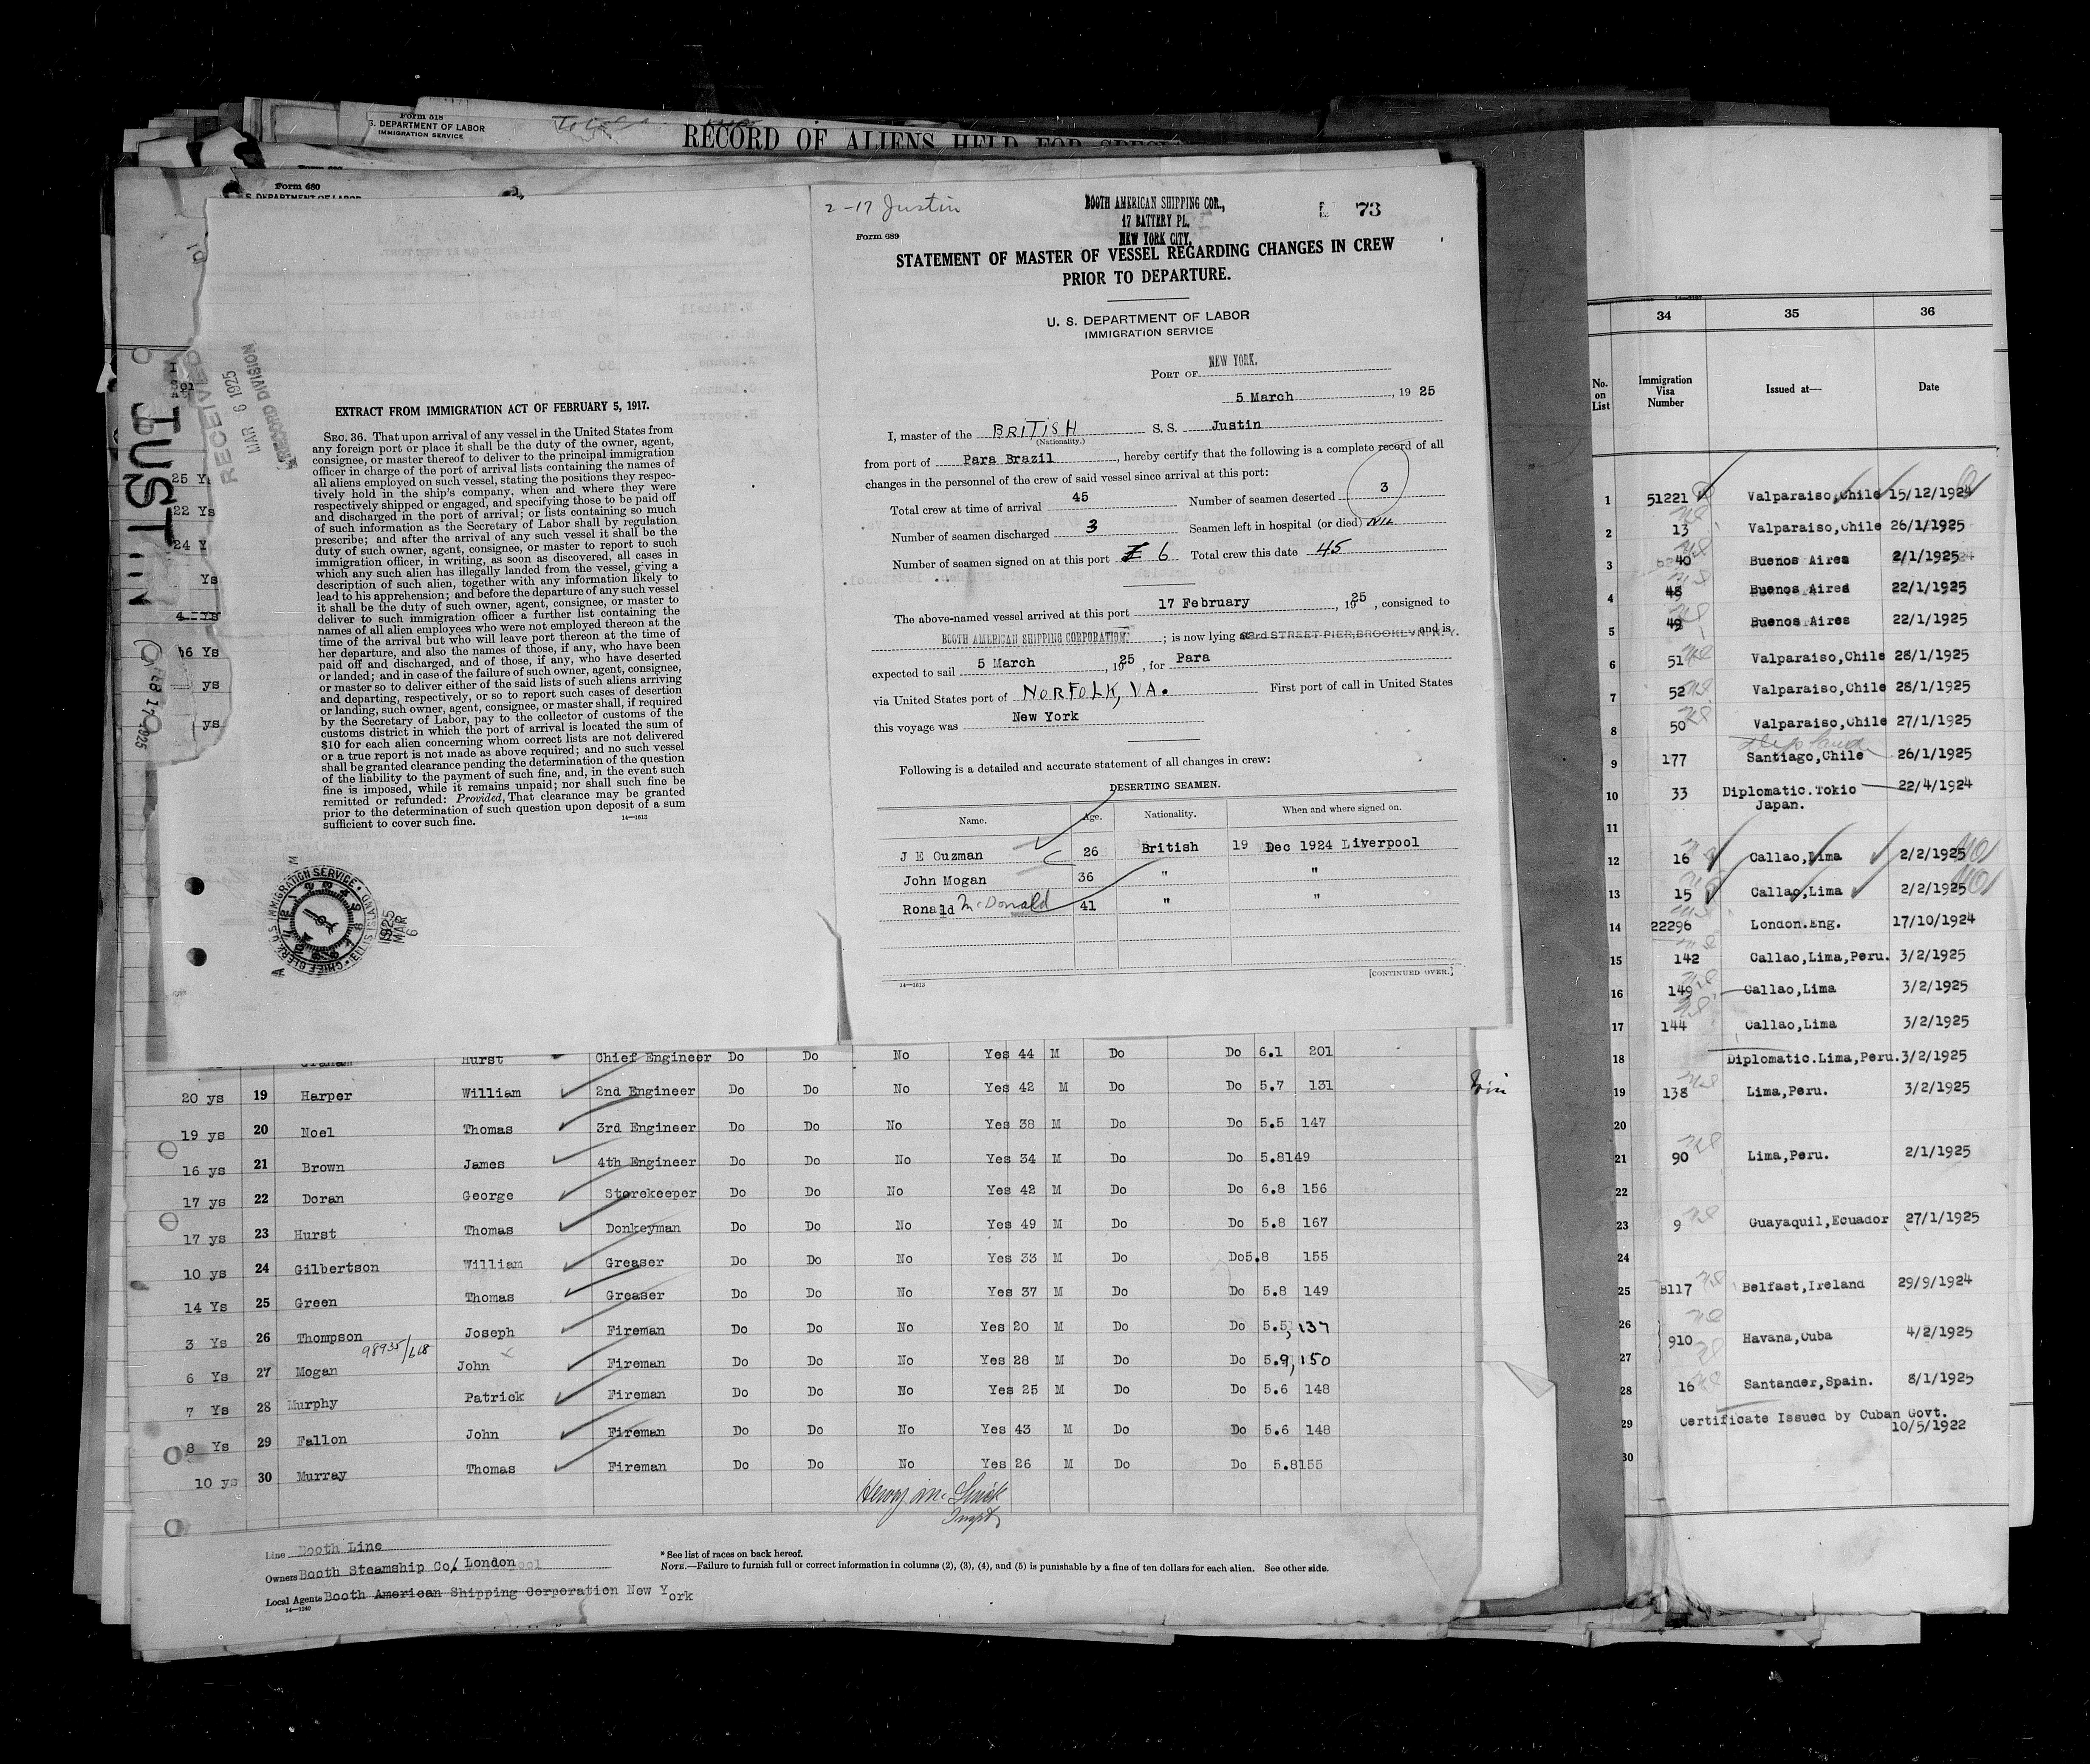 Form 518
S. DEPARTMENT OF LABOR
IMMIGRATION SERVICE
RECORD OF ALIENS HELD FOR
Form 680
S. DEPARTMENT OF LABOR
RECEIVED
MAR 6 1925
RECORD DIVISION
JUSTIN
FEB 17 1925
25 Ys
22 Ys
24 Y
Ys
4 Ys
16 Ys
ys
ys
EXTRACT FROM IMMIGRATION ACT OF FEBRUARY 5, 1917.
SEC. 36. That upon arrival of any vessel in the United States from
any foreign port or place it shall be the duty of the owner, agent,
consignee, or master thereof to deliver to the principal immigration
officer in charge of the port of arrival lists containing the names of
all aliens employed on such vessel, stating the positions they respec-
tively hold in the ship's company, when and where they were
respectively shipped or engaged, and specifying those to be paid off
and discharged in the port of arrival; or lists containing so much
of such information as the Secretary of Labor shall by regulation
prescribe; and after the arrival of any such vessel it shall be the
duty of such owner, agent, consignee, or master to report to such
immigration officer, in writing, as soon as discovered, all cases in
which any such alien has illegally landed from the vessel, giving a
description of such alien, together with any information likely to
lead to his apprehension; and before the departure of any such vessel
it shall be the duty of such owner, agent, consignee, or master to
deliver to such immigration officer a further list containing the
names of all alien employees who were not employed thereon at the
time of the arrival but who will leave port thereon at the time of
her departure, and also the names of those, if any, who have been
paid off and discharged, and of those, if any, who have deserted
or landed; and in case of the failure of such owner, agent, consignee,
or master so to deliver either of the said lists of such aliens arriving
and departing, respectively, or so to report such cases of desertion
or landing, such owner, agent, consignee, or master shall, if required
by the Secretary of Labor, pay to the collector of customs of the
customs district in which the port of arrival is located the sum of
$10 for each alien concerning whom correct lists are not delivered
or a true report is not made as above required; and no such vessel
shall be granted clearance pending the determination of the question
of the liability to the payment of such fine, and, in the event such
fine is imposed, while it remains unpaid; nor shall such fine be
remitted or refunded: Provided, That clearance may be granted
prior to the determination of such question upon deposit of a sum
sufficient to cover such fine.
14—1613
CHIEF CLERK, U.S. IMMIGRATION SERVICE ELLIS ISLAND
1925 MAR 6
2-17 Justin
BOOTH AMERICAN SHIPPING COR.,
17 BATTERY PL.
NEW YORK CITY.
73
Form 689
STATEMENT OF MASTER OF VESSEL REGARDING CHANGES IN CREW
PRIOR TO DEPARTURE.
U. S. DEPARTMENT OF LABOR
IMMIGRATION SERVICE
PORT OF NEW YORK.
5 March, 1925
I, master of the BRITISH S. S. Justin
(Nationality.)
from port of Para Brazil, hereby certify that the following is a complete record of all
changes in the personnel of the crew of said vessel since arrival at this port:
Total crew at time of arrival 45 Number of seamen deserted 3
Number of seamen discharged 3 Seamen left in hospital (or died) NIL
Number of seamen signed on at this port 6 Total crew this date 45
The above-named vessel arrived at this port 17 February, 1925, consigned to
BOOTH AMERICAN SHIPPING CORPORATION; is now lying 33rd STREET PIER, BROOKLYN, N.Y. and is
expected to sail 5 March, 1925, for Para
via United States port of NORFOLK, VA. First port of call in United States
this voyage was New York
Following is a detailed and accurate statement of all changes in crew:
DESERTING SEAMEN.
Name. Age. Nationality. When and where signed on.
J E Ouzman 26 British 19 Dec 1924 Liverpool
John Mogan 36 " "
Ronald McDonald 41 " "
[CONTINUED OVER.]
14—1613
Graham Hurst Chief Engineer Do Do No Yes 44 M Do Do 6.1 201
20 ys 19 Harper William 2nd Engineer Do Do No Yes 42 M Do Do 5.7 131
19 ys 20 Noel Thomas 3rd Engineer Do Do No Yes 38 M Do Do 5.5 147
16 ys 21 Brown James 4th Engineer Do Do No Yes 34 M Do Do 5.8149
17 ys 22 Doran George Storekeeper Do Do No Yes 42 M Do Do 6.8 156
17 ys 23 Hurst Thomas Donkeyman Do Do No Yes 49 M Do Do 5.8 167
10 ys 24 Gilbertson William Greaser Do Do No Yes 33 M Do Do5.8 155
14 Ys 25 Green Thomas Greaser Do Do No Yes 37 M Do Do 5.8 149
3 Ys 26 Thompson Joseph Fireman Do Do No Yes 20 M Do Do 5.5, 137
98935/618
6 Ys 27 Mogan John Fireman Do Do No Yes 28 M Do Do 5.9, 150
7 Ys 28 Murphy Patrick Fireman Do Do No Yes 25 M Do Do 5.6 148
8 Ys 29 Fallon John Fireman Do Do No Yes 43 M Do Do 5.6 148
10 ys 30 Murray Thomas Fireman Do Do No Yes 26 M Do Do 5.8155
Line Booth Line
Owners Booth Steamship Co/. London
Local Agents Booth American Shipping Corporation New York
14—1240
* See list of races on back hereof.
NOTE.—Failure to furnish full or correct information in columns (2), (3), (4), and (5) is punishable by a fine of ten dollars for each alien. See other side.
34 35 36
No. on List
Immigration Visa Number
Issued at—
Date
1 51221 Valparaiso,Chile 15/12/1924
2 13 Valparaiso,Chile 26/1/1925
3 40 Buenos Aires 2/1/1925
4 48 Buenos Aires 22/1/1925
5 49 Buenos Aires 22/1/1925
6 51 Valparaiso,Chile 28/1/1925
7 52 Valparaiso,Chile 28/1/1925
8 50 Valparaiso,Chile 27/1/1925
9 177 Santiago,Chile 26/1/1925
10 33 Diplomatic.Tokio Japan. 22/4/1924
11
12 16 Callao,Lima 2/2/1925
13 15 Callao,Lima 2/2/1925
14 22296 London.Eng. 17/10/1924
15 142 Callao,Lima,Peru. 3/2/1925
16 149 Callao,Lima 3/2/1925
17 144 Callao,Lima 3/2/1925
18 Diplomatic.Lima,Peru. 3/2/1925
19 138 Lima,Peru. 3/2/1925
20
21 90 Lima,Peru. 2/1/1925
22
23 9 Guayaquil,Ecuador 27/1/1925
24
25 8117 Belfast,Ireland 29/9/1924
26
910 Havana,Cuba 4/2/1925
27
28 16 Santander,Spain. 8/1/1925
29 Certificate Issued by Cuban Govt.
10/5/1922
30